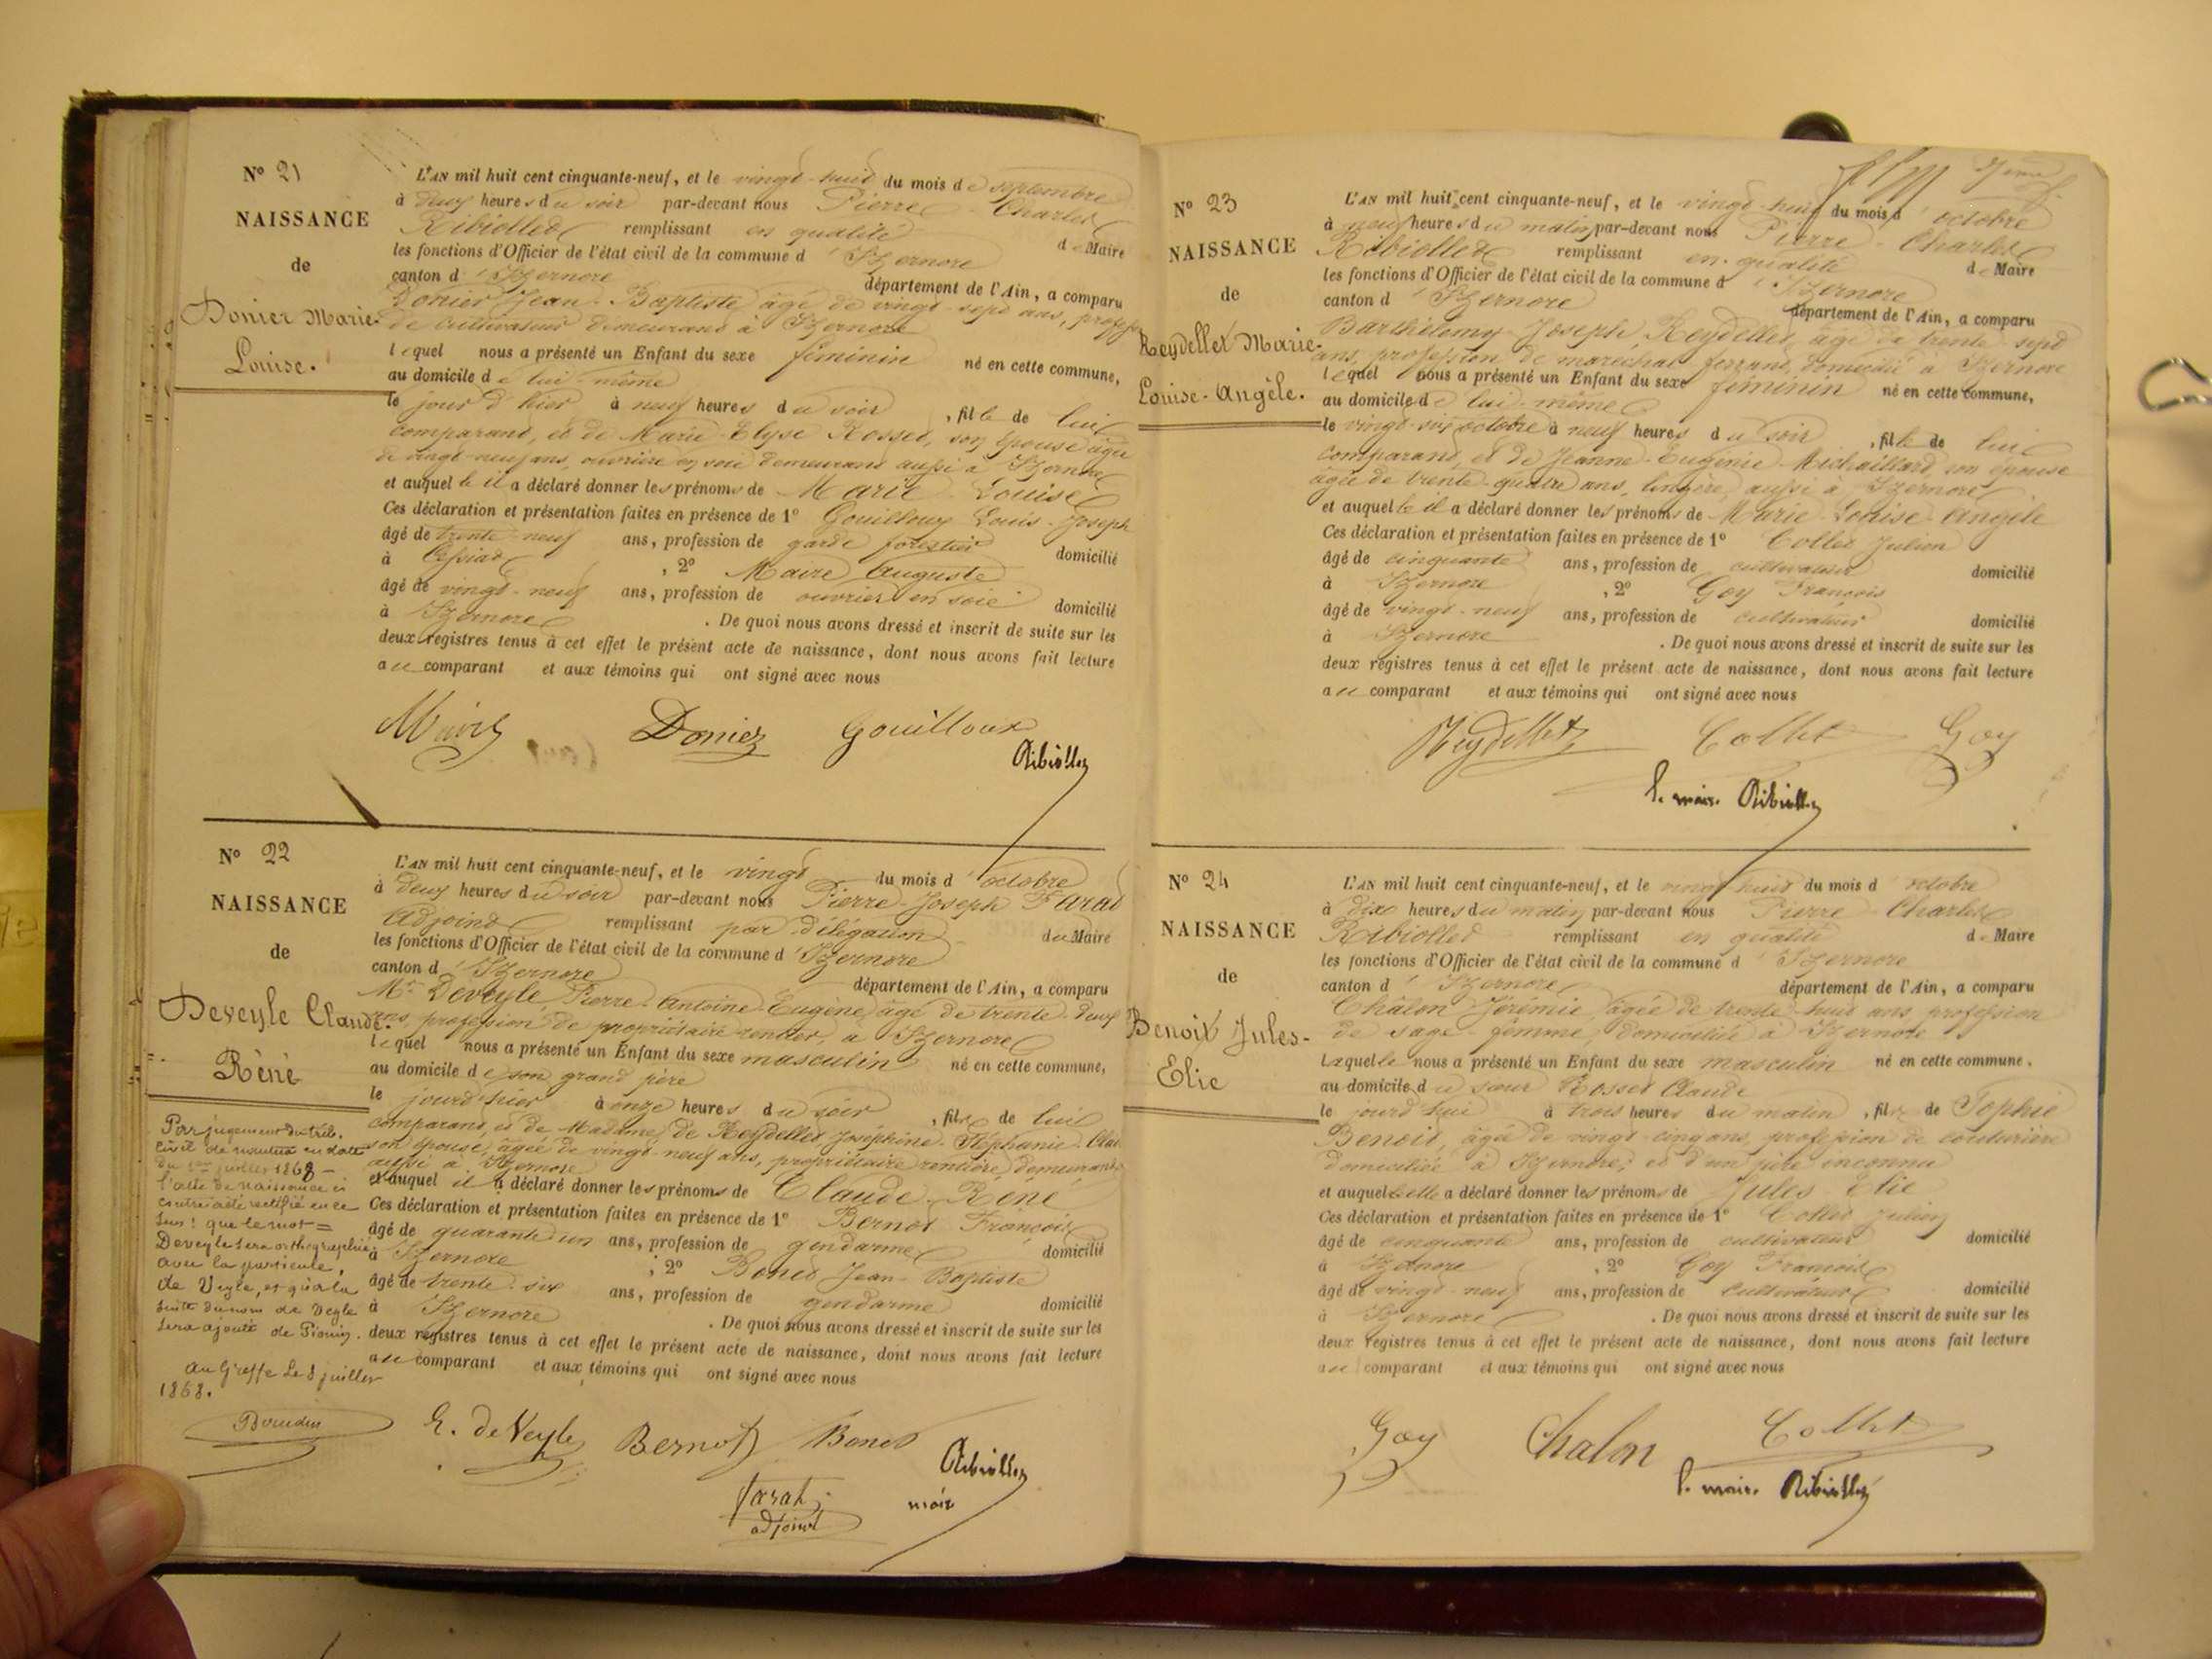 N° 21
NAISSANCE
de
Donier Marie-
Louise.
L'AN mil huit cent cinquante-neuf, et le vingt-huit du mois de septembre
à deux heures du soir par-devant nous Pierre-Charles
Ribiollet remplissant en qualité de Maire
les fonctions d'Officier de l'état civil de la commune d'Izernore
canton d'Izernore département de l'Ain, a comparu
Donier Jean-Baptiste âgé de vingt-sept ans,
de cultivateur demeurant à Izernore
lequel nous a présenté un Enfant du sexe féminin né en cette commune,
au domicile de lui-même
le jour d'hier à neuf heures du soir, fille de lui
comparant, et de Marie-Elyse Rosset, son épouse âgée
de vingt-neuf ans, ouvrière en soie demeurant aussi à Izernore
et auquelle il a déclaré donner les prénoms de Marie-Louise
Ces déclaration et présentation faites en présence de 1° Gouilloux Louis-Joseph
âgé de trente-neuf ans, profession de garde forestier domicilié
à , 2° Maire Auguste
âgé de vingt-neuf ans, profession de ouvrier en soie domicilié
à Izernore. De quoi nous avons dressé et inscrit de suite sur les
deux registres tenus à cet effet le présent acte de naissance, dont nous avons fait lecture
au comparant et aux témoins qui ont signé avec nous
Maire Donier Gouilloux
Ribiollet
N° 22
NAISSANCE
de
Deveyle Claude-
Réné
L'AN mil huit cent cinquante-neuf, et le vingt du mois d'octobre
à deux heures du soir par-devant nous Pierre-Joseph Farat
Adjoint remplissant par délégation du Maire
les fonctions d'Officier de l'état civil de la commune d'Izernore
canton d'Izernore département de l'Ain, a comparu
Mr Deveyle Pierre-Antoine-Eugène, âgé de trente-deux
ans, profession de propriétaire rentier, à Izernore
lequel nous a présenté un Enfant du sexe masculin né en cette commune,
au domicile de son grand père
le jourd'hier à onze heures du soir, fils de lui
comparant, et de Madame de Reydellet Joséphine-Stéphanie
son épouse, âgée de vingt-neuf ans, propriétaire rentière, demeurant
aussi à Izernore
et auquel il a déclaré donner les prénoms de Claude-Réné
Ces déclaration et présentation faites en présence de 1° Bernot François
âgé de quarante-un ans, profession de gendarme domicilié
à Izernore, 2° Bonet Jean-Baptiste
âgé de trente-six ans, profession de gendarme domicilié
à Izernore. De quoi nous avons dressé et inscrit de suite sur les
deux registres tenus à cet effet le présent acte de naissance, dont nous avons fait lecture
au comparant et aux témoins qui ont signé avec nous
Par jugement du trib.
Civil de nantua en date
du 1er juillet 1868 -
l'acte de naissance ci
contre a été rectifié en ce
sens: que le mot =
Deveyle sera orthographié
avec la particule,
de Veyle, et qu'à la
suite du nom de Veyle
sera ajouté de
au Greffe le 8 juillet
1868.
E. de Veyle Bernot Bonet
Ribiollet
maire
Farat
adjoint
N° 23
NAISSANCE
de
Reydellet Marie-
Louise-Angèle.
L'AN mil huit cent cinquante-neuf, et le vingt-huit du mois d'octobre
à neuf heures du matin par-devant nous Pierre-Charles
Ribiollet remplissant en qualité de Maire
les fonctions d'Officier de l'état civil de la commune d'Izernore
canton d'Izernore département de l'Ain, a comparu
Barthélemy-Joseph Reydellet, âgé de trente-sept
ans, profession de maréchal ferrant, domicilié à Izernore
lequel nous a présenté un Enfant du sexe féminin né en cette commune,
au domicile de lui-même
le vingt-six octobre à neuf heures du soir, fille de lui
comparant, et de Jeanne-Eugénie Michaillard son épouse
âgée de trente-quatre ans, lingère, aussi à Izernore
et auquelle il a déclaré donner les prénoms de Marie-Louise-Angèle
Ces déclaration et présentation faites en présence de 1° Collet Julien
âgé de cinquante ans, profession de cultivateur domicilié
à Izernore, 2° Goy François
âgé de vingt-neuf ans, profession de cultivateur domicilié
à Izernore. De quoi nous avons dressé et inscrit de suite sur les
deux registres tenus à cet effet le présent acte de naissance, dont nous avons fait lecture
au comparant et aux témoins qui ont signé avec nous
Reydellet Collet Goy
le maire Ribiollet
N° 24
NAISSANCE
de
Benoit Jules-
Elie
L'AN mil huit cent cinquante-neuf, et le vingt-huit du mois d'octobre
à dix heures du matin par-devant nous Pierre-Charles
Ribiollet remplissant en qualité de Maire
les fonctions d'Officier de l'état civil de la commune d'Izernore
canton d'Izernore département de l'Ain, a comparu
Châlon Jérémie, âgée de trente-huit ans, profession
de sage-femme, domiciliée à Izernore
Laquelle nous a présenté un Enfant du sexe masculin né en cette commune.
au domicile du sieur Rosset Claude
le jourd'hui à trois heures du matin, fils de Sophie
Benoit, âgée de vingt-cinq ans, profession de couturière
domiciliée à Izernore; et d'un père inconnu
et auquel elle a déclaré donner les prénoms de Jules Elie
Ces déclaration et présentation faites en présence de 1° Collet Julien
âgé de cinquante ans, profession de cultivateur domicilié
à Izernore, 2° Goy François
âgé de vingt-neuf ans, profession de cultivateur domicilié
à Izernore. De quoi nous avons dressé et inscrit de suite sur les
deux registres tenus à cet effet le présent acte de naissance, dont nous avons fait lecture
au comparant et aux témoins qui ont signé avec nous
Goy Chalon Collet
le maire Ribiollet